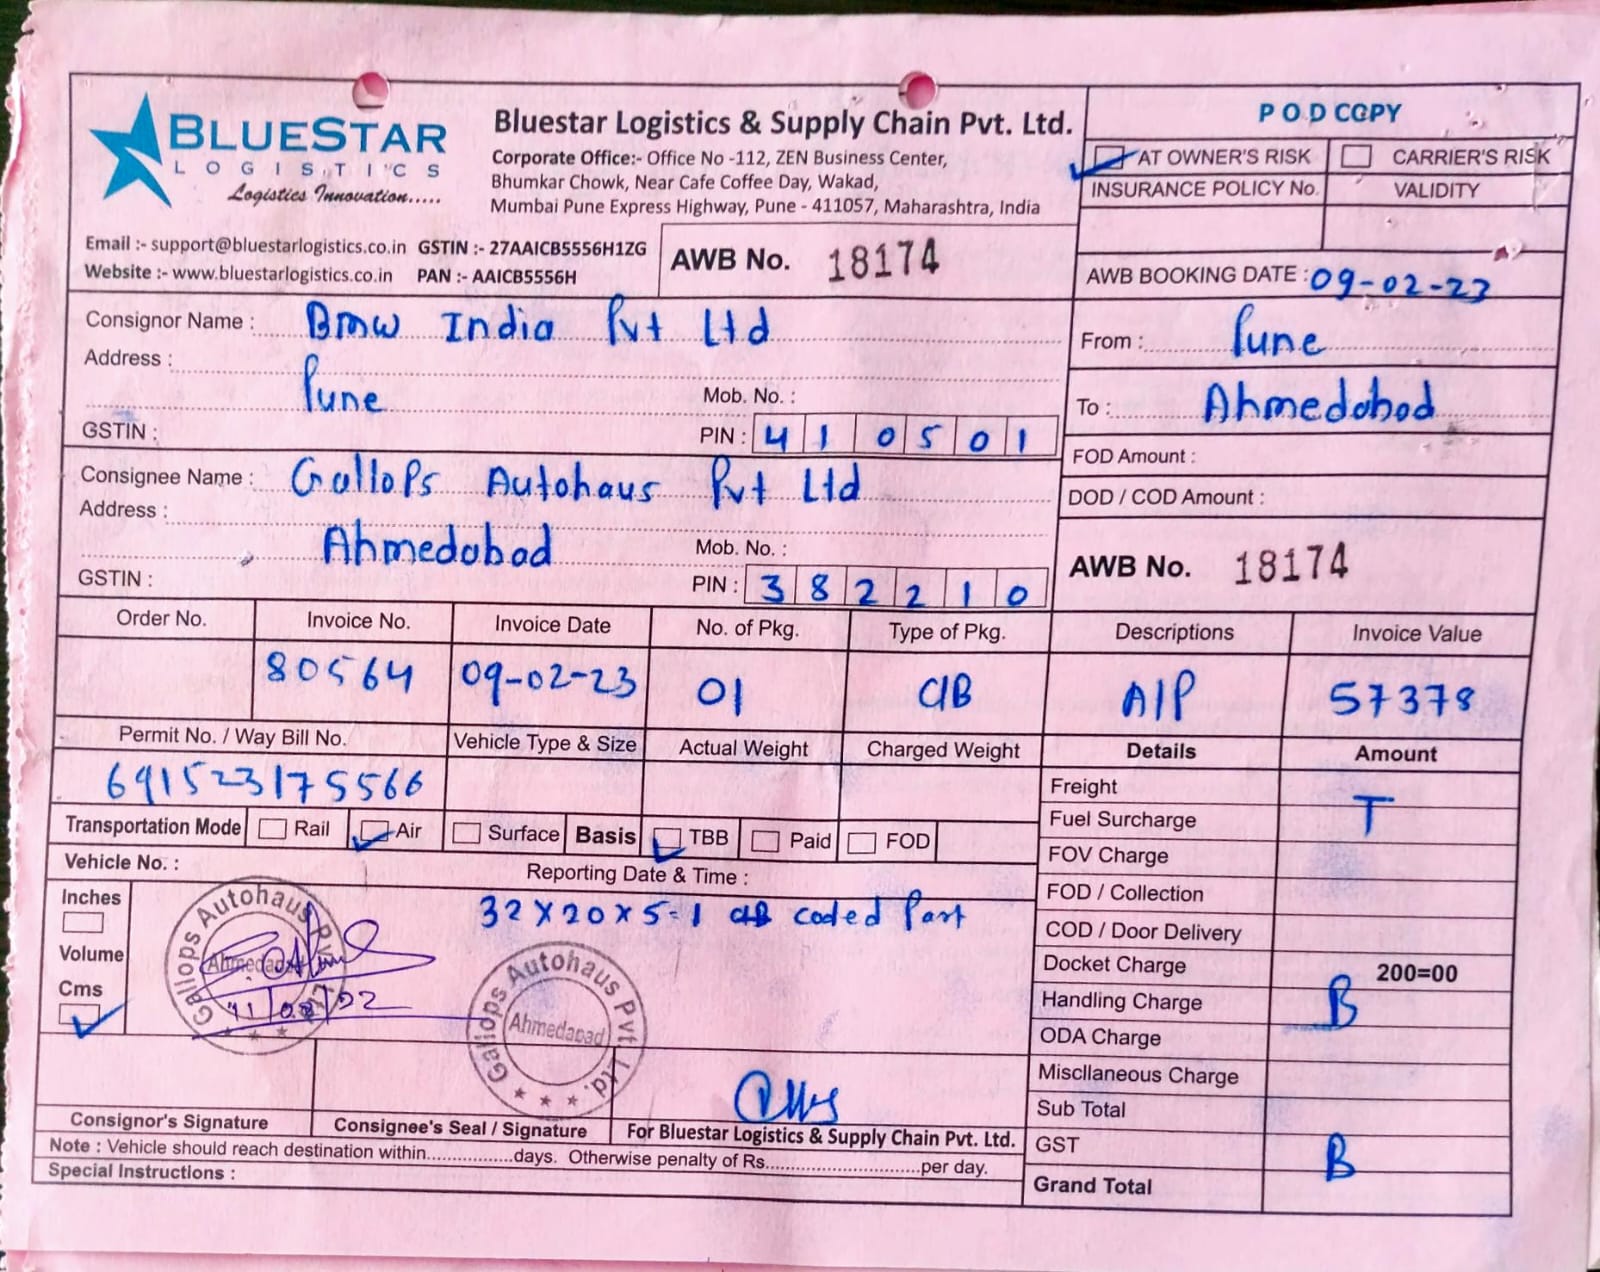 BLUESTAR
LOGISTICS
Logistics Innovation.....
Bluestar Logistics & Supply Chain Pvt. Ltd.
Corporate Office:- Office No -112, ZEN Business Center,
Bhumkar Chowk, Near Cafe Coffee Day, Wakad,
Mumbai Pune Express Highway, Pune - 411057, Maharashtra, India
Email :- support@bluestarlogistics.co.in GSTIN :- 27AAICB5556H1ZG
Website :- www.bluestarlogistics.co.in PAN :- AAICB5556H
AWB No. 18174
POD COPY
AT OWNER'S RISK CARRIER'S RISK
INSURANCE POLICY No. VALIDITY
AWB BOOKING DATE : 09-02-23
Consignor Name : Bmw India Pvt Ltd
Address :
Pune
Mob. No. :
GSTIN :
PIN : 410501
From : Pune
To : Ahmedabad
FOD Amount :
DOD / COD Amount :
Consignee Name : Gallops Autohaus Pvt Ltd
Address :
Ahmedabad
Mob. No. :
GSTIN :
PIN : 382210
AWB No. 18174
Order No. Invoice No. Invoice Date No. of Pkg. Type of Pkg. Descriptions Invoice Value
80564 09-02-23 01 C/B A/P 57378
Permit No. / Way Bill No. Vehicle Type & Size Actual Weight Charged Weight Details Amount
691523175566
Transportation Mode Rail Air Surface Basis TBB Paid FOD
Vehicle No. :
Reporting Date & Time :
Inches
Volume
Cms
32x20x5=1 C/B coded Part
Gallops Autohaus Pvt. Ltd.
Ahmedabad
Gallops Autohaus Pvt. Ltd.
Ahmedabad
Freight
Fuel Surcharge T
FOV Charge
FOD / Collection
COD / Door Delivery
Docket Charge 200=00
Handling Charge B
ODA Charge
Miscllaneous Charge
Sub Total
GST B
Grand Total
Consignor's Signature
Consignee's Seal / Signature
For Bluestar Logistics & Supply Chain Pvt. Ltd.
Note : Vehicle should reach destination within................days. Otherwise penalty of Rs...............................per day.
Special Instructions :